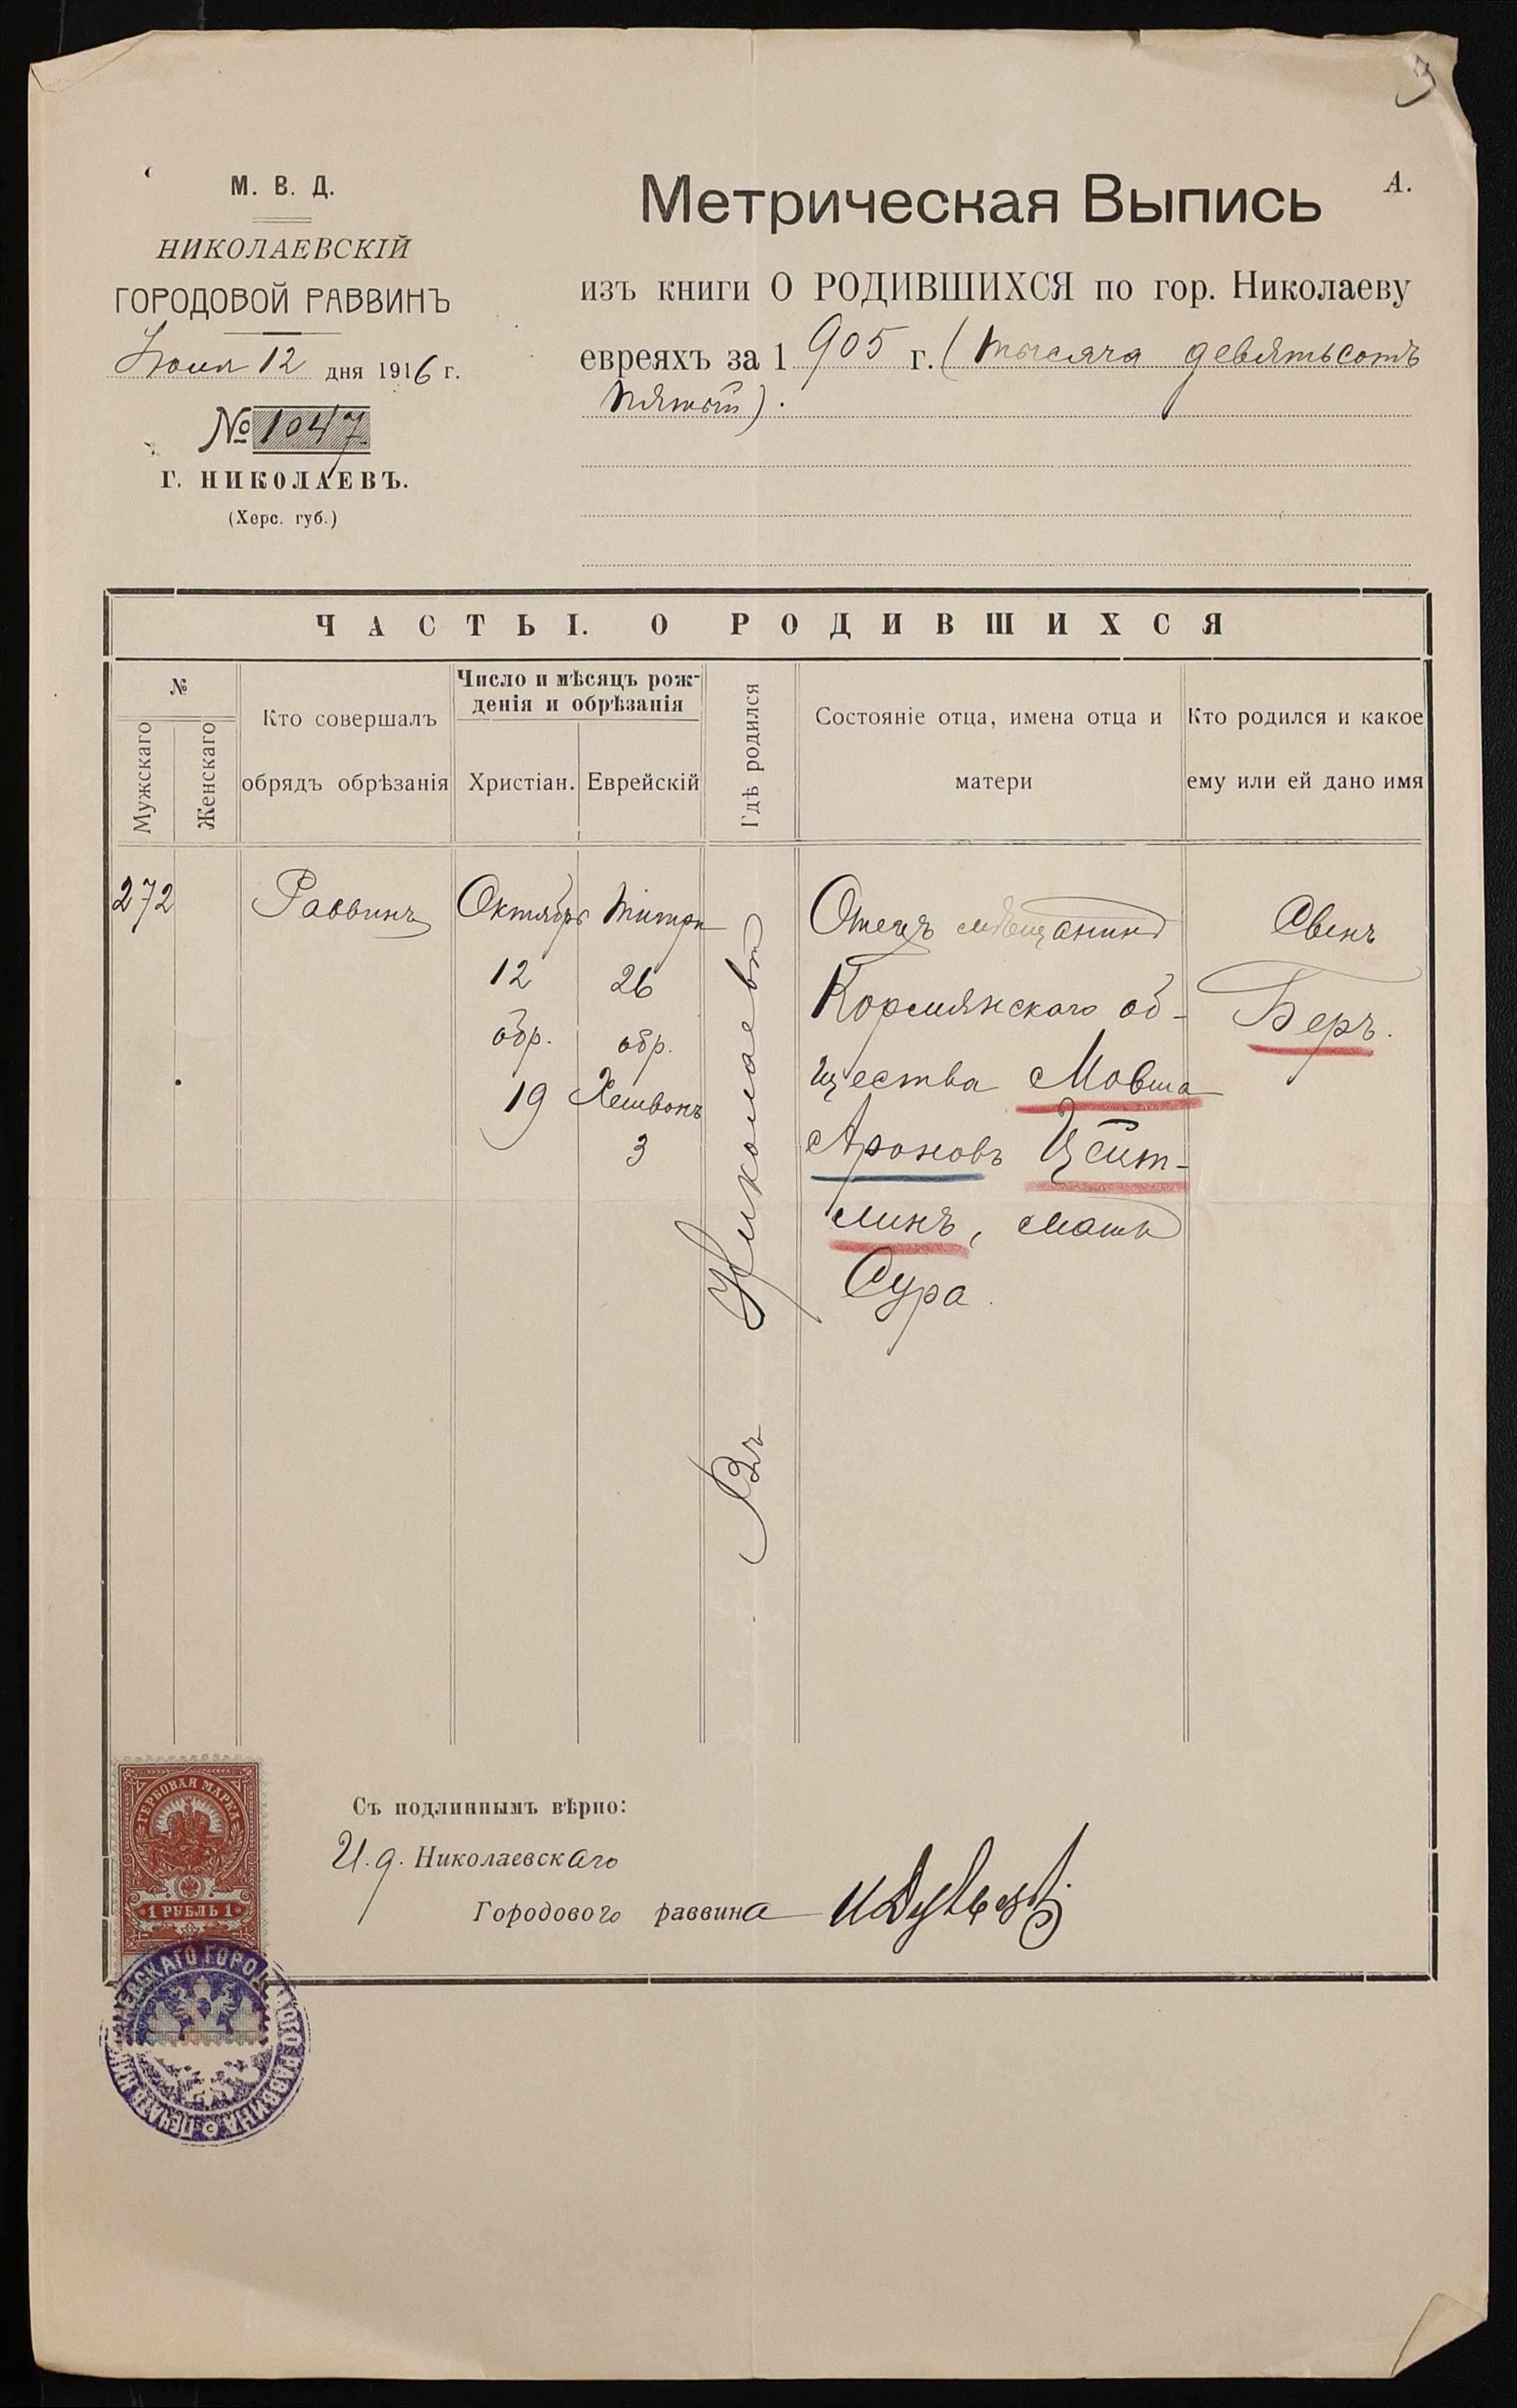 А.
М. В. Д.
НИКОЛАЕВСКІЙ
ГОРОДОВОЙ РАВВИНЪ
12 дня 1916 г.
№ 1047
Г. НИКОЛАЕВЪ.
(Херс. губ.)
Метрическая Выпись
изъ книги О РОДИВШИХСЯ по гор. Николаеву
евреяхъ за 1905 г. (тысяча девятьсотъ
пятый).
ЧАСТЬ I. О РОДИВШИХСЯ
№
Мужскаго
Женскаго
Кто совершалъ
обрядъ обрѣзанія
Число и мѣсяцъ рож-
денія и обрѣзанія
Христіан.
Еврейскій
Гдѣ родился
Состояніе отца, имена отца и
матери
Кто родился и какое
ему или ей дано имя
272
Раввинъ
Октябрь
12
обр.
19
Тишри
26
обр.
Хешвонъ
3
Въ Николаевѣ
Отецъ мѣщанинъ
Кормянскаго об-
щества Мовша
Ароновъ Цейт-
линъ, мать
Сура.
Сынъ
Беръ.
ГЕРБОВАЯ МАРКА
1 РУБЛЬ 1
Съ подлиннымъ вѣрно:
И. д. Николаевскаго
Городового раввина
ПЕЧАТЬ НИКОЛАЕВСКАГО ГОРОДОВОГО РАВВИНА